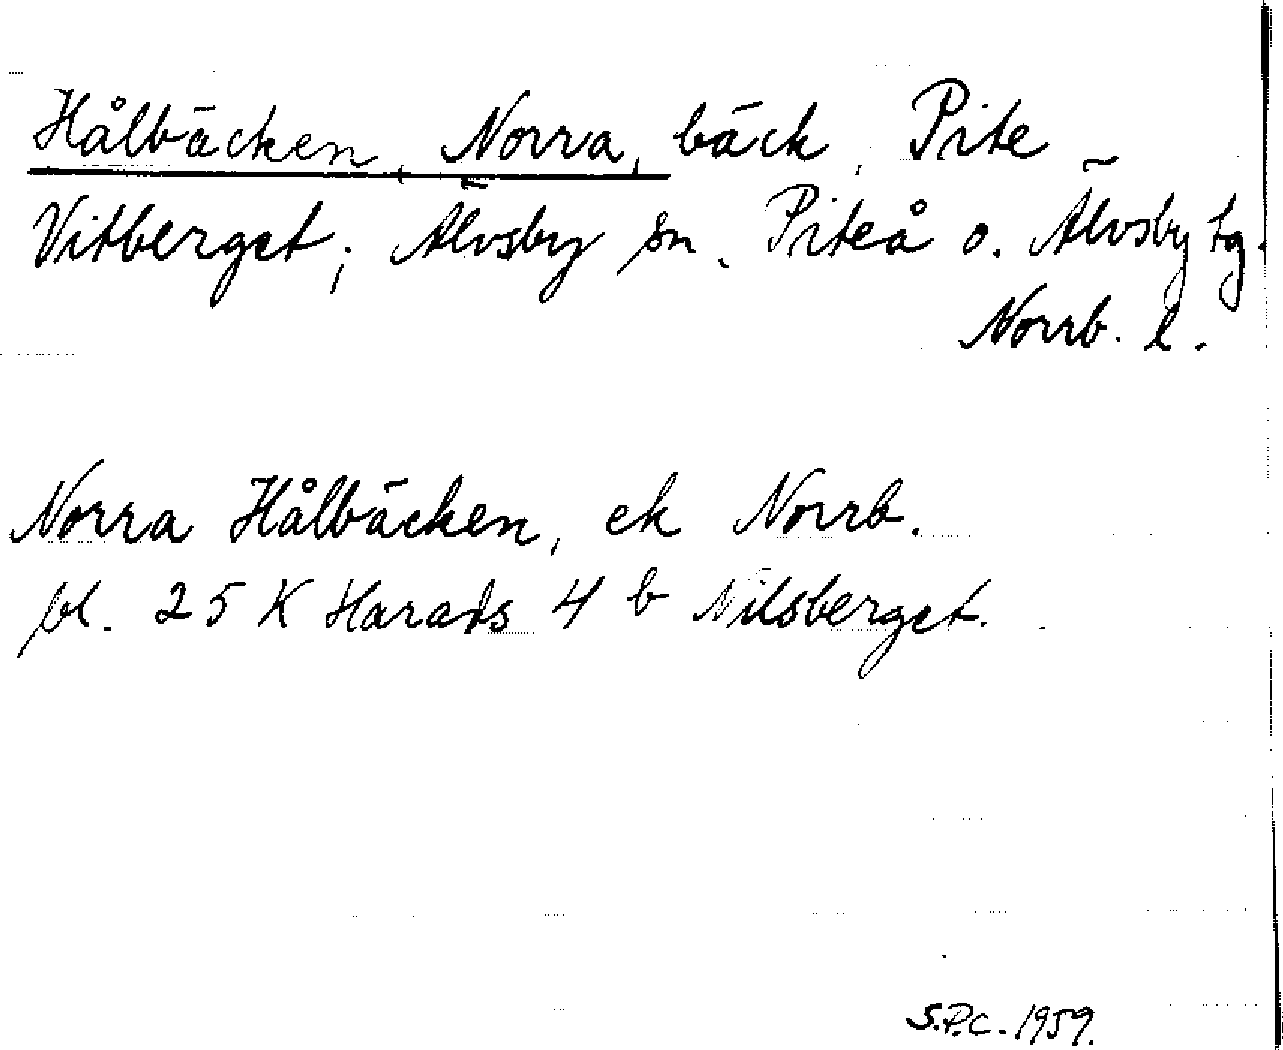 Hålbäcken, Norra, bäck, Pite
Vitberget; Älvsby sn. Piteå o. Älvsby tg.
Norrb. l.
Norra Hålbäcken, ek Norrb.
bl. 25 K Harads 4 b Nilsberget.
S.P.C. 1959.